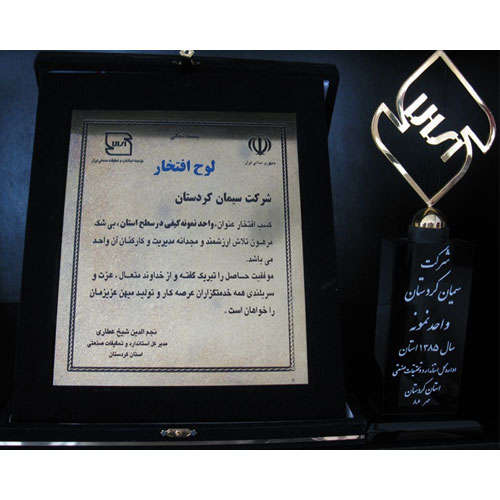 بسمه تعالی
جمهوری اسلامی ایران
موسسه استاندارد و تحقیقات صنعتی ایران
لوح افتخار
شرکت سیمان کردستان
کسب افتخار عنوان، واحد نمونه کیفی در سطح استان، بی شک
مرهون تلاش ارزشمند و مجدانه مدیریت و کارکنان آن واحد
می باشد.
موفقیت حاصل را تبریک گفته و از خداوند متعال، عزت و
سربلندی همه خدمتگزاران عرصه کار و تولید میهن عزیزمان
را خواهان است.
نجم الدین شیخ عطاری
مدیر کل استاندارد و تحقیقات صنعتی
استان کردستان
شرکت
سیمان کردستان
واحد نمونه
سال ۱۳۸۵ استان
اداره کل استاندارد و تحقیقات صنعتی
استان کردستان
مهر ۸۶